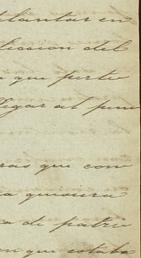 plantar en
leccion del
que perte
llegar al pun
ras que con
a quisiera
a de patri
en que estaba